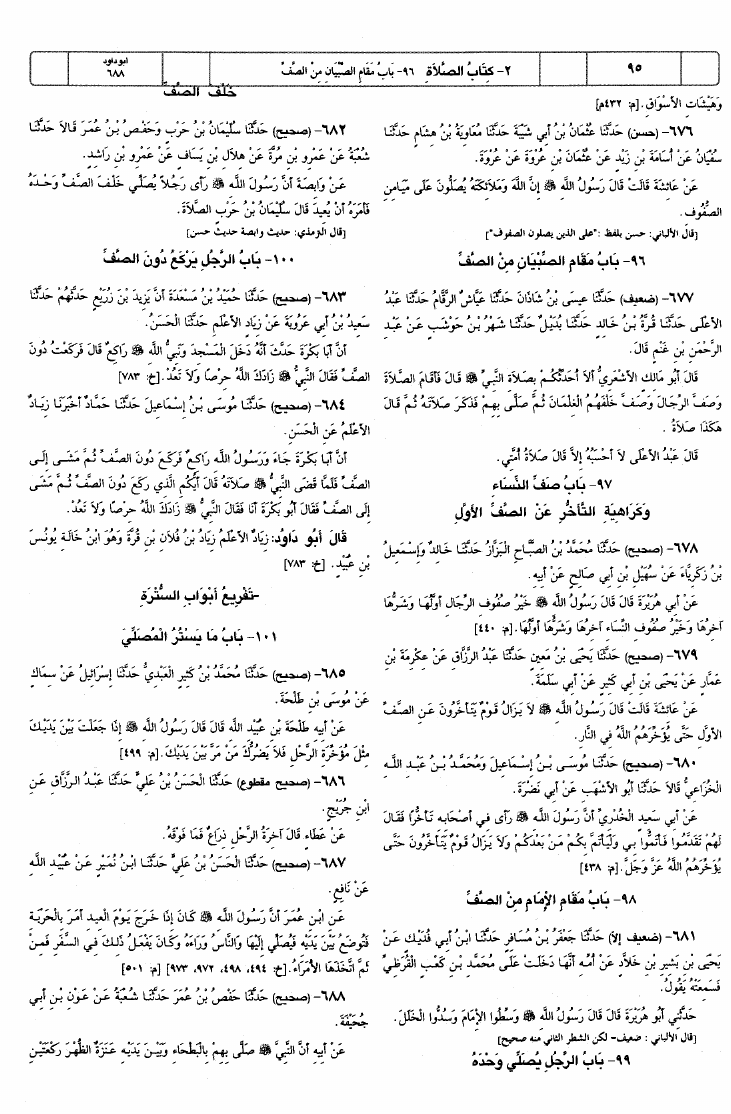 ابو داود
٦٨٨
٢- كتَابُ الصَّلاَةِ ٩٦- بَابُ مَقَامِ الصِّبْيَانِ مِنْ الصَّفِّ
٩٥
وَهَيْشَاتِ الأَسْوَاقِ. [م: ٤٣٢م]
٦٧٦- (حسن) حَدَّثَنَا عُثْمَانُ بْنُ أَبِي شَيْبَةَ حَدَّثَنَا مُعَاوِيَةُ بْنُ هِشَامٍ حَدَّثَنَا
سُفْيَانُ عَنْ أُسَامَةَ بْنِ زَيْدٍ عَنْ عُثْمَانَ بْنِ عُرْوَةَ عَنْ عُرْوَةَ.
عَنْ عَائِشَةَ قَالَتْ قَالَ رَسُولُ اللَّه ﷺ إِنَّ اللَّهَ وَمَلاَئِكَتَهُ يُصَلُّونَ عَلَى مَيَامِنِ
الصُّفُوفِ.
[قال الألباني: حسن بلفظ: "على الذين يصلون الصفوف"]
٩٦- بَابُ مَقَامِ الصِّبْيَانِ مِنْ الصَّفِّ
٦٧٧- (ضعيف) حَدَّثَنَا عِيسَى بْنُ شَاذَانَ حَدَّثَنَا عَيَّاشٌ الرَّقَّامُ حَدَّثَنَا عَبْدُ
الأَعْلَى حَدَّثَنَا قُرَّةُ بْنُ خَالِدٍ حَدَّثَنَا بُدَيْلٌ حَدَّثَنَا شَهْرُ بْنُ حَوْشَبٍ عَنْ عَبْدِ
الرَّحْمَنِ بْنِ غَنْمٍ قَالَ.
قَالَ أَبُو مَالِكٍ الأَشْعَرِيُّ أَلاَ أُحَدِّثُكُمْ بِصَلاَةِ النَّبِيِّ ﷺ قَالَ فَأَقَامَ الصَّلاَةَ
وَصَفَّ الرِّجَالَ وَصَفَّ خَلْفَهُمُ الْغِلْمَانَ ثُمَّ صَلَّى بِهِمْ فَذَكَرَ صَلاَتَهُ ثُمَّ قَالَ
هَكَذَا صَلاَةُ .
قَالَ عَبْدُ الأَعْلَى لاَ أَحْسَبُهُ إِلاَّ قَالَ صَلاَةُ أُمَّتِي.
٩٧- بَابُ صَفِّ النِّسَاءِ
وَكَرَاهِيَةِ التَّأَخُّرِ عَنْ الصَّفِّ الأَوَّلِ
٦٧٨- (صحيح) حَدَّثَنَا مُحَمَّدُ بْنُ الصَّبَّاحِ الْبَزَّازُ حَدَّثَنَا خَالِدٌ وَإِسْمَعِيلُ
بْنُ زَكَرِيَّاءَ عَنْ سُهَيْلِ بْنِ أَبِي صَالِحٍ عَنْ أَبِيهِ.
عَنْ أَبِي هُرَيْرَةَ قَالَ قَالَ رَسُولُ اللَّه ﷺ خَيْرُ صُفُوفِ الرِّجَالِ أَوَّلُهَا وَشَرُّهَا
آخِرُهَا وَخَيْرُ صُفُوفِ النِّسَاءِ آخِرُهَا وَشَرُّهَا أَوَّلُهَا. [م: ٤٤٠]
٦٧٩- (صحيح) حَدَّثَنَا يَحْيَى بْنُ مَعِينٍ حَدَّثَنَا عَبْدُ الرَّزَّاقِ عَنْ عِكْرِمَةَ بْنِ
عَمَّارٍ عَنْ يَحْيَى بْنِ أَبِي كَثِيرٍ عَنْ أَبِي سَلَمَةَ.
عَنْ عَائِشَةَ قَالَتْ قَالَ رَسُولُ اللَّه ﷺ لاَ يَزَالُ قَوْمٌ يَتَأَخَّرُونَ عَنِ الصَّفِّ
الأَوَّلِ حَتَّى يُؤَخِّرَهُمُ اللَّهُ فِي النَّارِ.
٦٨٠- (صحيح) حَدَّثَنَا مُوسَى بْنُ إِسْمَاعِيلَ وَمُحَمَّدُ بْنُ عَبْدِ اللَّه
الْخُزَاعِيُّ قَالاَ حَدَّثَنَا أَبُو الأَشْهَبِ عَنْ أَبِي نَضْرَةَ.
عَنْ أَبِي سَعِيدٍ الْخُدْرِيِّ أَنَّ رَسُولَ اللَّه ﷺ رَأَى فِي أَصْحَابِهِ تَأَخُّرًا فَقَالَ
لَهُمْ تَقَدَّمُوا فَأْتَمُّوا بِي وَلْيَأْتَمَّ بِكُمْ مَنْ بَعْدَكُمْ وَلاَ يَزَالُ قَوْمٌ يَتَأَخَّرُونَ حَتَّى
يُؤَخِّرَهُمُ اللَّهُ عَزَّ وَجَلَّ. [م: ٤٣٨]
٩٨- بَابُ مَقَامِ الإِمَامِ مِنْ الصَّفِّ
٦٨١- (ضعيف إلا) حَدَّثَنَا جَعْفَرُ بْنُ مُسَافِرٍ حَدَّثَنَا ابْنُ أَبِي فُدَيْكٍ عَنْ
يَحْيَى بْنِ بَشِيرِ بْنِ خَلاَّدٍ عَنْ أُمِّهِ أَنَّهَا دَخَلَتْ عَلَى مُحَمَّدِ بْنِ كَعْبٍ الْقُرَظِيِّ
فَسَمِعَتْهُ يَقُولُ.
حَدَّثَنِي أَبُو هُرَيْرَةَ قَالَ قَالَ رَسُولُ اللَّه ﷺ وَسِّطُوا الإِمَامَ وَسُدُّوا الْخَلَلَ.
[قال الألباني: ضعيف- لكن الشطر الثاني منه صحيح]
٩٩- بَابُ الرَّجُلِ يُصَلِّي وَحْدَهُ
خَلْفَ الصَّفِّ
٦٨٢- (صحيح) حَدَّثَنَا سُلَيْمَانُ بْنُ حَرْبٍ وَحَفْصُ بْنُ عُمَرَ قَالاَ حَدَّثَنَا
شُعْبَةُ عَنْ عَمْرِو بْنِ مُرَّةَ عَنْ هِلاَلِ بْنِ يَسَافٍ عَنْ عَمْرِو بْنِ رَاشِدٍ.
عَنْ وَابِصَةَ أَنَّ رَسُولَ اللَّه ﷺ رَأَى رَجُلاً يُصَلِّي خَلْفَ الصَّفِّ وَحْدَهُ
فَأَمَرَهُ أَنْ يُعِيدَ قَالَ سُلَيْمَانُ بْنُ حَرْبٍ الصَّلاَةَ.
[قال الترمذي: حديث وابصة حديث حسن]
١٠٠- بَابُ الرَّجُلِ يَرْكَعُ دُونَ الصَّفِّ
٦٨٣- (صحيح) حَدَّثَنَا حُمَيْدُ بْنُ مَسْعَدَةَ أَنَّ يَزِيدَ بْنَ زُرَيْعٍ حَدَّثَهُمْ حَدَّثَنَا
سَعِيدُ بْنُ أَبِي عَرُوبَةَ عَنْ زِيَادٍ الأَعْلَمِ حَدَّثَنَا الْحَسَنُ.
أَنَّ أَبَا بَكْرَةَ حَدَّثَ أَنَّهُ دَخَلَ الْمَسْجِدَ وَنَبِيُّ اللَّه ﷺ رَاكِعٌ قَالَ فَرَكَعْتُ دُونَ
الصَّفِّ فَقَالَ النَّبِيُّ ﷺ زَادَكَ اللَّهُ حِرْصًا وَلاَ تَعُدْ. [خ: ٧٨٣]
٦٨٤- (صحيح) حَدَّثَنَا مُوسَى بْنُ إِسْمَاعِيلَ حَدَّثَنَا حَمَّادٌ أَخْبَرَنَا زِيَادٌ
الأَعْلَمُ عَنِ الْحَسَنِ.
أَنَّ أَبَا بَكْرَةَ جَاءَ وَرَسُولُ اللَّه رَاكِعٌ فَرَكَعَ دُونَ الصَّفِّ ثُمَّ مَشَى إِلَى
الصَّفِّ فَلَمَّا قَضَى النَّبِيُّ ﷺ صَلاَتَهُ قَالَ أَيُّكُمِ الَّذِي رَكَعَ دُونَ الصَّفِّ ثُمَّ مَشَى
إِلَى الصَّفِّ فَقَالَ أَبُو بَكْرَةَ أَنَا فَقَالَ النَّبِيُّ ﷺ زَادَكَ اللَّهُ حِرْصًا وَلاَ تَعُدْ.
قَالَ أَبُو دَاوُد: زِيَادٌ الأَعْلَمُ زِيَادُ بْنُ فُلاَنِ بْنِ قُرَّةَ وَهُوَ ابْنُ خَالَةِ يُونُسَ
بْنِ عُبَيْدٍ. [خ: ٧٨٣]
-تَفْرِيعُ أَبْوَابِ السُّتْرَةِ
١٠١- بَابُ مَا يَسْتُرُ الْمُصَلِّيَ
٦٨٥- (صحيح) حَدَّثَنَا مُحَمَّدُ بْنُ كَثِيرٍ الْعَبْدِيُّ حَدَّثَنَا إِسْرَائِيلُ عَنْ سِمَاكٍ
عَنْ مُوسَى بْنِ طَلْحَةَ.
عَنْ أَبِيهِ طَلْحَةَ بْنِ عُبَيْدِ اللَّه قَالَ قَالَ رَسُولُ اللَّه ﷺ إِذَا جَعَلْتَ بَيْنَ يَدَيْكَ
مِثْلَ مُؤَخِّرَةِ الرَّحْلِ فَلاَ يَضُرُّكَ مَنْ مَرَّ بَيْنَ يَدَيْكَ. [م: ٤٩٩]
٦٨٦- (صحيح مقطوع) حَدَّثَنَا الْحَسَنُ بْنُ عَلِيٍّ حَدَّثَنَا عَبْدُ الرَّزَّاقِ عَنِ
ابْنِ جُرَيْجٍ.
عَنْ عَطَاءٍ قَالَ آخِرَةُ الرَّحْلِ ذِرَاعٌ فَمَا فَوْقَهُ.
٦٨٧- (صحيح) حَدَّثَنَا الْحَسَنُ بْنُ عَلِيٍّ حَدَّثَنَا ابْنُ نُمَيْرٍ عَنْ عُبَيْدِ اللَّه
عَنْ نَافِعٍ.
عَنِ ابْنِ عُمَرَ أَنَّ رَسُولَ اللَّه ﷺ كَانَ إِذَا خَرَجَ يَوْمَ الْعِيدِ أَمَرَ بِالْحَرْبَةِ
فَتُوضَعُ بَيْنَ يَدَيْهِ فَيُصَلِّي إِلَيْهَا وَالنَّاسُ وَرَاءَهُ وَكَانَ يَفْعَلُ ذَلِكَ فِي السَّفَرِ فَمِنْ
ثَمَّ اتَّخَذَهَا الأُمَرَاءُ. [خ: ٤٩٤، ٤٩٨، ٩٧٢، ٩٧٣] [م: ٥٠١]
٦٨٨- (صحيح) حَدَّثَنَا حَفْصُ بْنُ عُمَرَ حَدَّثَنَا شُعْبَةُ عَنْ عَوْنِ بْنِ أَبِي
جُحَيْفَةَ.
عَنْ أَبِيهِ أَنَّ النَّبِيَّ ﷺ صَلَّى بِهِمْ بِالْبَطْحَاءِ وَبَيْنَ يَدَيْهِ عَنَزَةٌ الظُّهْرَ رَكْعَتَيْنِ